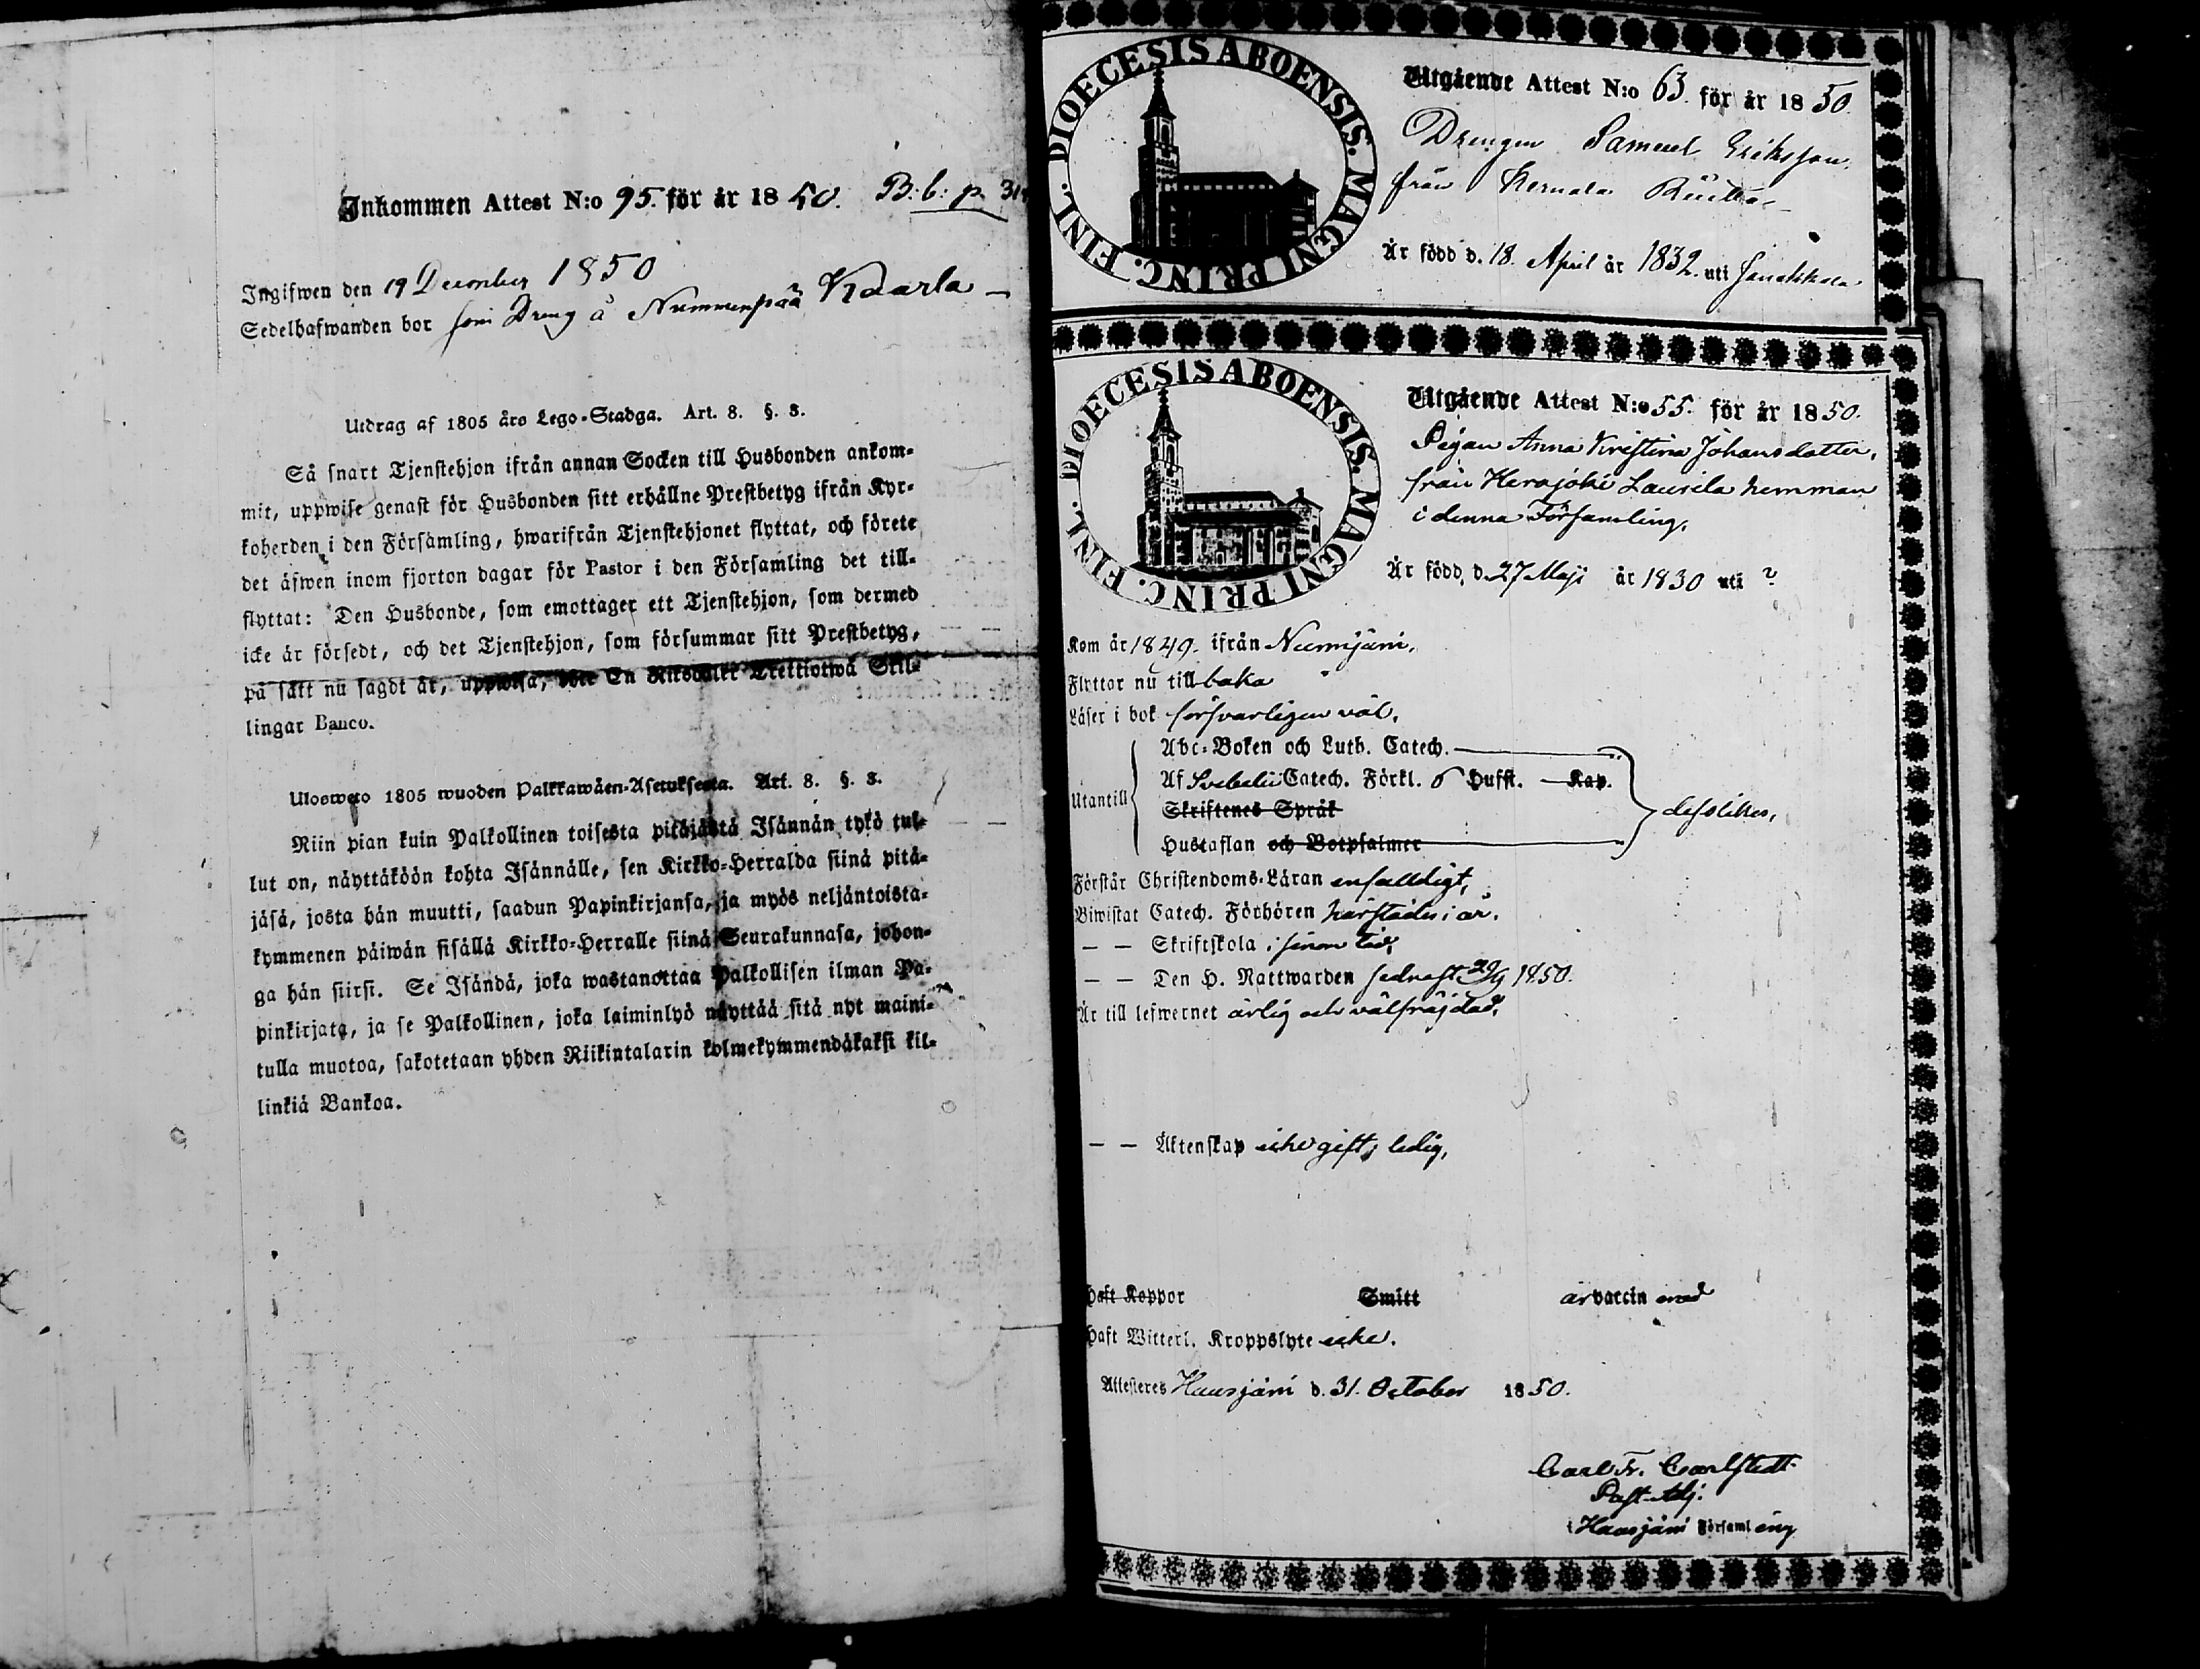 Inkommen Attest N:o 95. för år 1850. B: b: p. 31
Ingifwen den 19 December 1850
Sedelhafwanden bor som Dreng å Nummenpää Kaarla —
Utdrag af 1805 års Lego-Stadga. Art. 8. §. 3.
Så snart Tjenstehjon ifrån annan Socken till Husbonden ankom-
mit, uppwise genast för Husbonden sitt erhållne Prestbetyg ifrån Kyr-
koherden i den Församling, hwarifrån Tjenstehjonet flyttat, och förete
det äfwen inom fjorton dagar för Pastor i den Församling det till-
flyttat: Den Husbonde, som emottager ett Tjenstehjon, som dermed
icke är försedt, och det Tjenstehjon, som försummar sitt Prestbetyg,
på sätt nu sagdt är, uppwisa, böte En Riksdaler Trettiotwå Skil-
lingar Banco.
Ulosweto 1805 wuoden Palkkawäen-Asetuksesta. Art. 8. §. 3.
Niin pian kuin Palkollinen toisesta pitäjästä Isännän tykö tul-
lut on, näyttäköön kohta Isännälle, sen Kirkko-Herralda siinä pitä-
jäsä, josta hän muutti, saadun Papinkirjansa, ja myös neljäntoista-
kymmenen päiwän sisällä Kirkko-Herralle siinä Seurakunnasa, johon-
ga hän siirsi. Se Isändä, joka wastanottaa Palkollisen ilman Pa-
pinkirjata, ja se Palkollinen, joka laiminlyö näyttää sitä nyt maini-
tulla muotoa, sakotetaan yhden Riikintalarin kolmekymmendäkaksi kil-
linkiä Bankoa.
DIOECESIS ABOENSIS. MAGNI PRINC. FINL.
Utgående Attest N:o 63. för år 1850.
Drengen Samuel Eriksson
från Hernala
Är född d. 18. April år 1832. uti Janakkala
DIOECESIS ABOENSIS. MAGNI PRINC. FINL.
Utgående Attest N:o 55. för år 1850.
Pigan Anna Kristina Johansdotter,
från Herajoki Laurila hemman
i denna Församling,
Är född, d. 27 Maji år 1830 uti ?
Kom år 1849. ifrån Nurmijärvi,
Flyttar nu tillbaka
Läser i bok försvarligen väl,
Utantill
Abc-Boken och Luth. Catech.
Af Svebelii Catech. Förkl. 6 Hufst. — Kap.
Skriftenes Språk
Hustaflan och Botpsalmer
dessliкes,
Förstår Christendoms-Läran enfalldigt,
Biwistat Catech. Förhören härstädes i år.
— — Skriftskola i sinom tid,
— — Den H. Nattwarden sednast 29/9 1850.
Är till lefwernet ärlig och välfräjdad,
— — Äktenskap icke gift, ledig,
Haft Koppor Smitt är vaccin erad
Haft Witterl. Kroppslyte icke.
Attesteres Hausjärvi d. 31. October 1850.
Carl Fr. Carlstedt
Past. Adj.
i Hausjärvi Församling